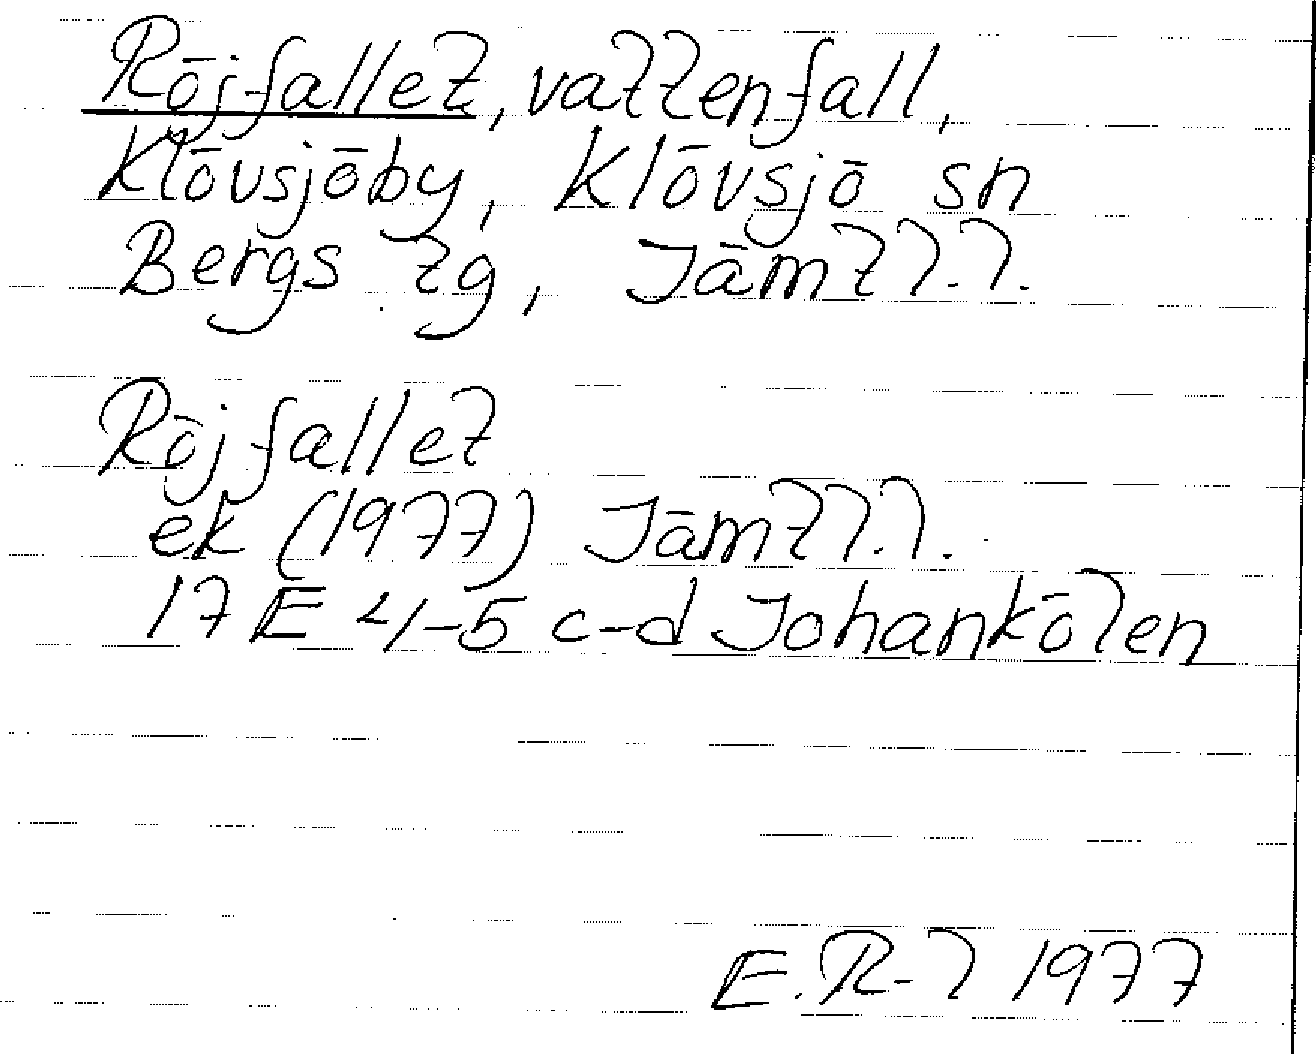 Röjfallet, vattenfall,
Klövsjöby, Klövsjö sn
Bergs tg, Jämtl.l.
Röjfallet
ek (1977) Jämtl.l.
17 E 4-5 c-d Johankölen
E. R-l 1977